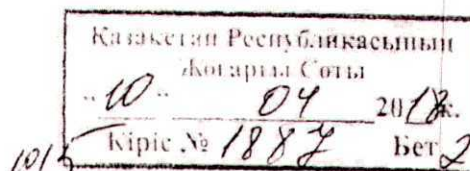 Қазақстан Республикасының
Жоғарғы Соты
"10" 04 2018ж.
Кіріс № 1887 Бет 2